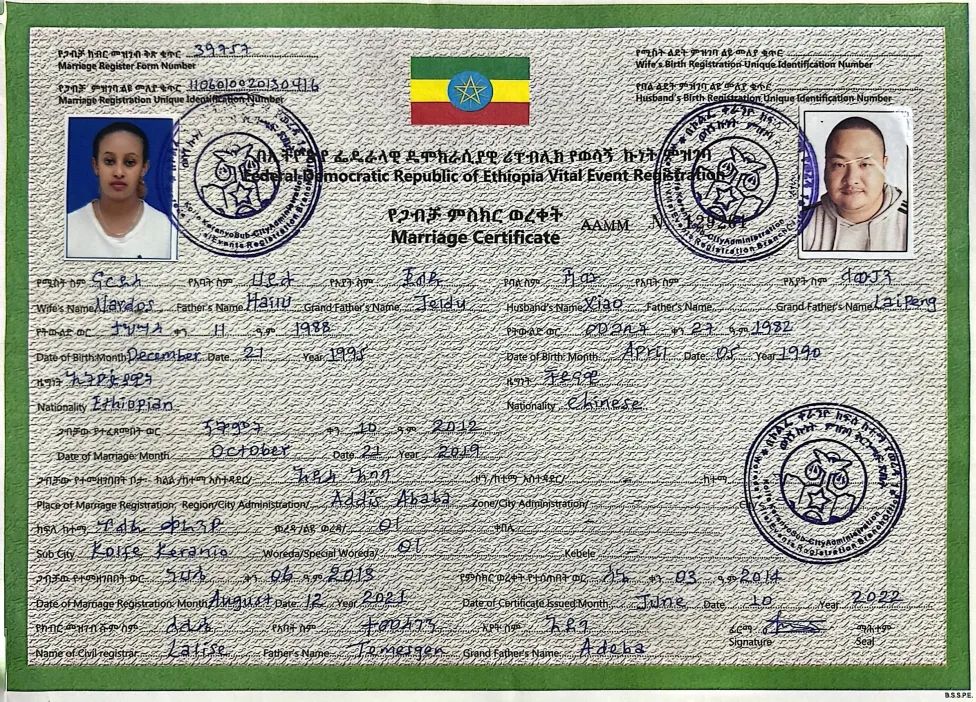 የጋብቻ ክብር መዝገብ ቅጽ ቁጥር 39757
Marriage Register Form Number
የጋብቻ ምዝገባ ልዩ መለያ ቁጥር
Marriage Registration Unique Identification Number
የሚስት ልደት ምዝገባ ልዩ መለያ ቁጥር
Wife's Birth Registration Unique Identification Number
የባል ልደት ምዝገባ ልዩ መለያ ቁጥር
Husband's Birth Registration Unique Identification Number
በኢትዮጵያ ፌዴራላዊ ዲሞክራሲያዊ ሪፐብሊክ የወሳኝ ኩነት ምዝገባ
Federal Democratic Republic of Ethiopia Vital Event Registration
የጋብቻ ምስክር ወረቀት
Marriage Certificate AAMM
የሚስት ስም የአባት ስም የአያት ስም
Wife's Name Nardos Father's Name Hailu Grand Father's Name
የትውልድ ወር ታህሣስ ቀን 11 ዓ.ም 1988
Date of Birth: Month December Date 21 Year 1995
ዜግነት ኢትዮጵያዊት
Nationality Ethiopian
የባል ስም የአባት ስም የአያት ስም
Husband's Name Xiao Father's Name Grand Father's Name LaiPeng
የትውልድ ወር መጋቢት ቀን 27 ዓ.ም 1982
Date of Birth: Month April Date 05 Year 1990
ዜግነት ቻይናዊ
Nationality Chinese
ጋብቻው የተፈጸመበት ወር ጥቅምት ቀን 10 ዓ.ም 2012
Date of Marriage: Month October Date 21 Year 2019
ጋብቻው የተመዘገበበት ቦታ፡ ክልል/ከተማ አስተዳደር/ አዲስ አበባ ዞን/ከተማ አስተዳደር/ - ከተማ
Place of Marriage Registration: Region/City Administration/ Addis Ababa Zone/City Administration/ -
ክፍለ ከተማ ኮልፌ ቀራንዮ ወረዳ/ልዩ ወረዳ/ 01 ቀበሌ -
Sub City Kolfe Keranio Woreda/Special Woreda/ 01 Kebele -
ጋብቻው የተመዘገበበት ወር ነሀሴ ቀን 06 ዓ.ም 2013 የምስክር ወረቀት የተሰጠበት ወር ሰኔ ቀን 03 ዓ.ም 2014
Date of Marriage Registration: Month August Date 12 Year 2021 Date of Certificate Issued Month June Date 10 Year 2022
የክብር መዝገብ ሹም ስም ለሊሴ የአባት ስም ተመስገን አያት ስም አዴባ ፊርማ ማሕተም
Name of Civil registrar Lalise Father's Name Temesgen Grand Father's Name Adeba Signature Seal
B.S.S.P.E.